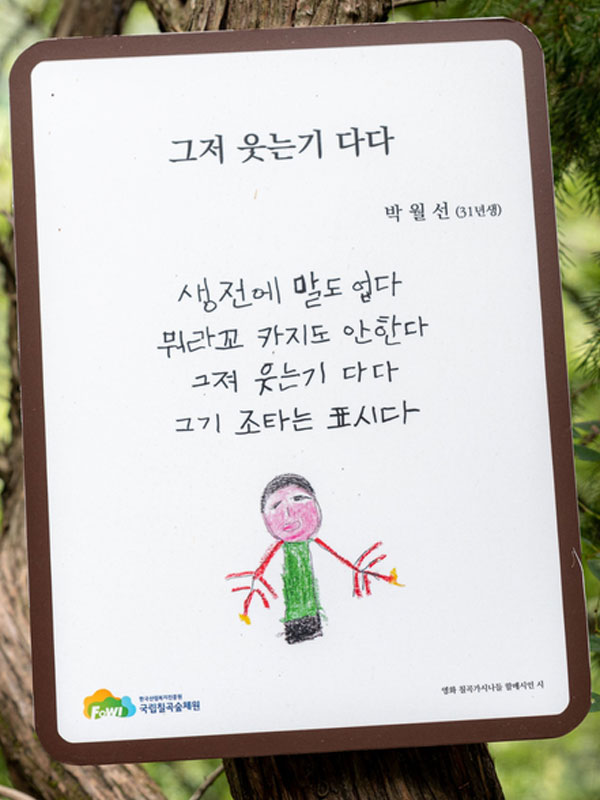 그저 웃는기 다다
박 월 선 (31년생)
생전에 말도 업다
뭐라꼬 카지도 안한다
그져 웃는기 다다
그기 조타는 표시다
FoWI
한국산림복지진흥원
국립칠곡숲체원
영화 칠곡가시나들 할매시인 시